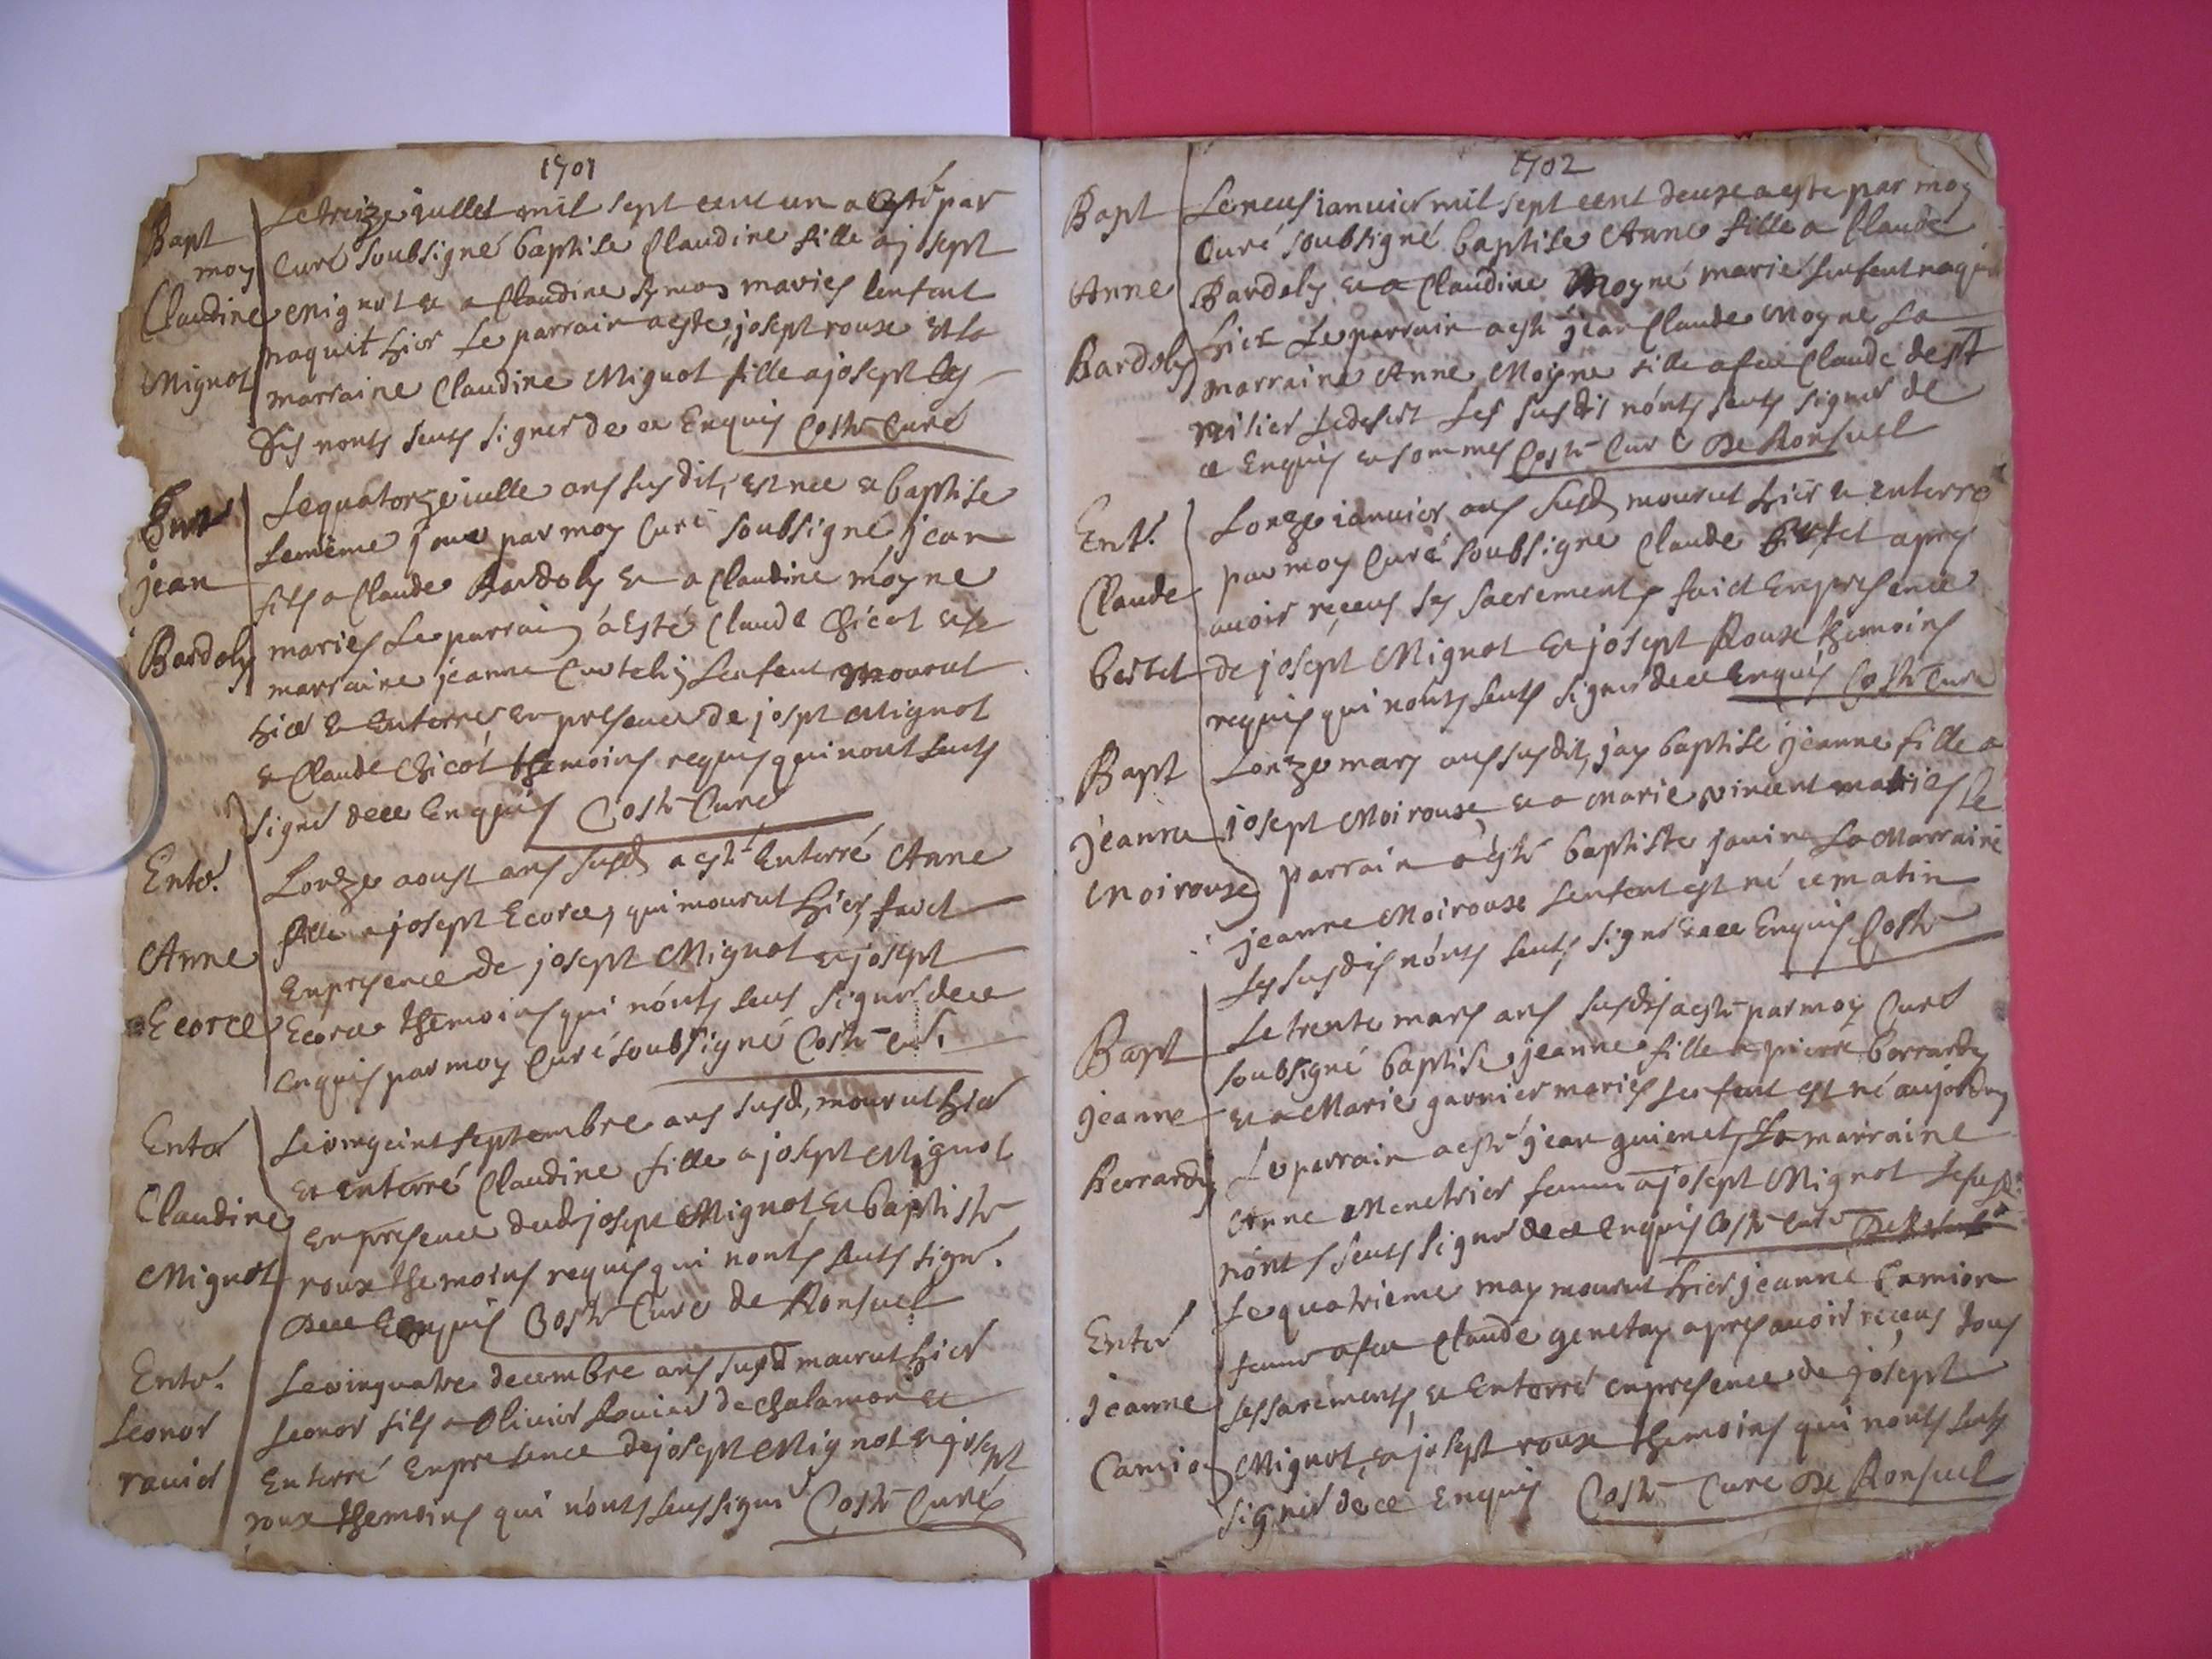 1701
Bapt Le treize iullet mil sept cent un a esté par
moy Curé soubsigné baptise Claudine fille a josept
Claudine Mignot et a Claudine Symon mariez lenfant
naquit hier Le parrain a este josept roux et la
Mignot marraine Claudine Mignot fille a josept les
dis nonts seuts signer de ce Enquis Coste Curé
Lequatorze iulle ans susdit, est nee et baptise
Lemême jour par moy Curé soubsigné jean
jean fils a Claude Bardoly et a Claudine moyne
Bardoly mariez Le parrain a Esté Claude Chicot et la
marraine jeanne Lenfent mourut
hier & Enterrer en presence de josept Mignot
& Claude Chicot themoins requis qui nont seuts
signer de ce Enquis Coste Curé
Enter. Lonze aoust ans susd a este Enterré Anne
fille a josept Ecorce, qui mourut hier, faict
Anne Enpresence de josept Mignot et josept
Ecorce Ecorce themoins qui nónts seus signer de ce
enquis par moy Curé soubsigné Coste cur.
Enter Le septembre ans susd, mourut hier
et enterré Claudine fille a josept Mignot
Claudine Enpresence dud josept Mignot et baptiste
Mignot roux themoins requis qui nonts seuts signer.
De ce Enquis Coste Curé de Ronsuel
Enter. Levinquatre decembre ans susd mourut hier
Leonor Leonor fils a Olivier Rouier de chalamon et
Enterré Enpresence de josept Mignot et josept
roux themoins qui nonts seus signer Coste Curé
1702
Bapt Leneuf ianuier mil sept cent deux a este par moy
Curé soubsigné baptise Anne fille a Claude
Anne Bardoly et a Claudine Moyne marié lenfent naquit
Bardoly hier Le parrain a este jean Claude Moyne La
marraine Anne Moyne fille a feu Claude de st
Les susdis nónts seuts signer de
ce Enquis et sommes Coste Curé De Ronsuel
Ent. Lonze ianuier ans susd mourut hier et enterré
par moy Curé soubsigné Claude bertet apres
Claude auoir receus les sacrements faict Enpresence
bertet de josept Mignot et josept Roux themoins
requis qui nonts seuts signer de ce Enquis Coste Curé
Bapt Lonze mars ans susdit, jay baptise jeanne fille a
jeanne josept Moiroux et a Marie vincent mariez Le
Moiroux parrain a este baptiste janin La Marraine
jeanne Moiroux Lenfent est né ce matin
Les susdis nónts seuts signer de ce Enquis Coste
Bapt Le trente mars ans susdis a este par moy Curé
soubsigné baptise jeanne fille a pierre berrardy
jeanne et a Marie garnier mariés Lenfent est né aujorduy
Berrardy Le parrain a esté jean guienet La marraine
Anne Menetrier femme a josept Mignot Le susd.
nónts seuts signer de ce enquis Coste Curé
Enter Le quatrieme may mourut hier jeanne Camion
femme a feu Claude genetay apres auoir receus tous
jeanne les sacrements, et Enterré enpresence de josept
Camion Mignot, et josept roux themoins qui nonts seuts
signer de ce Enquis Coste Curé De Ronsuel